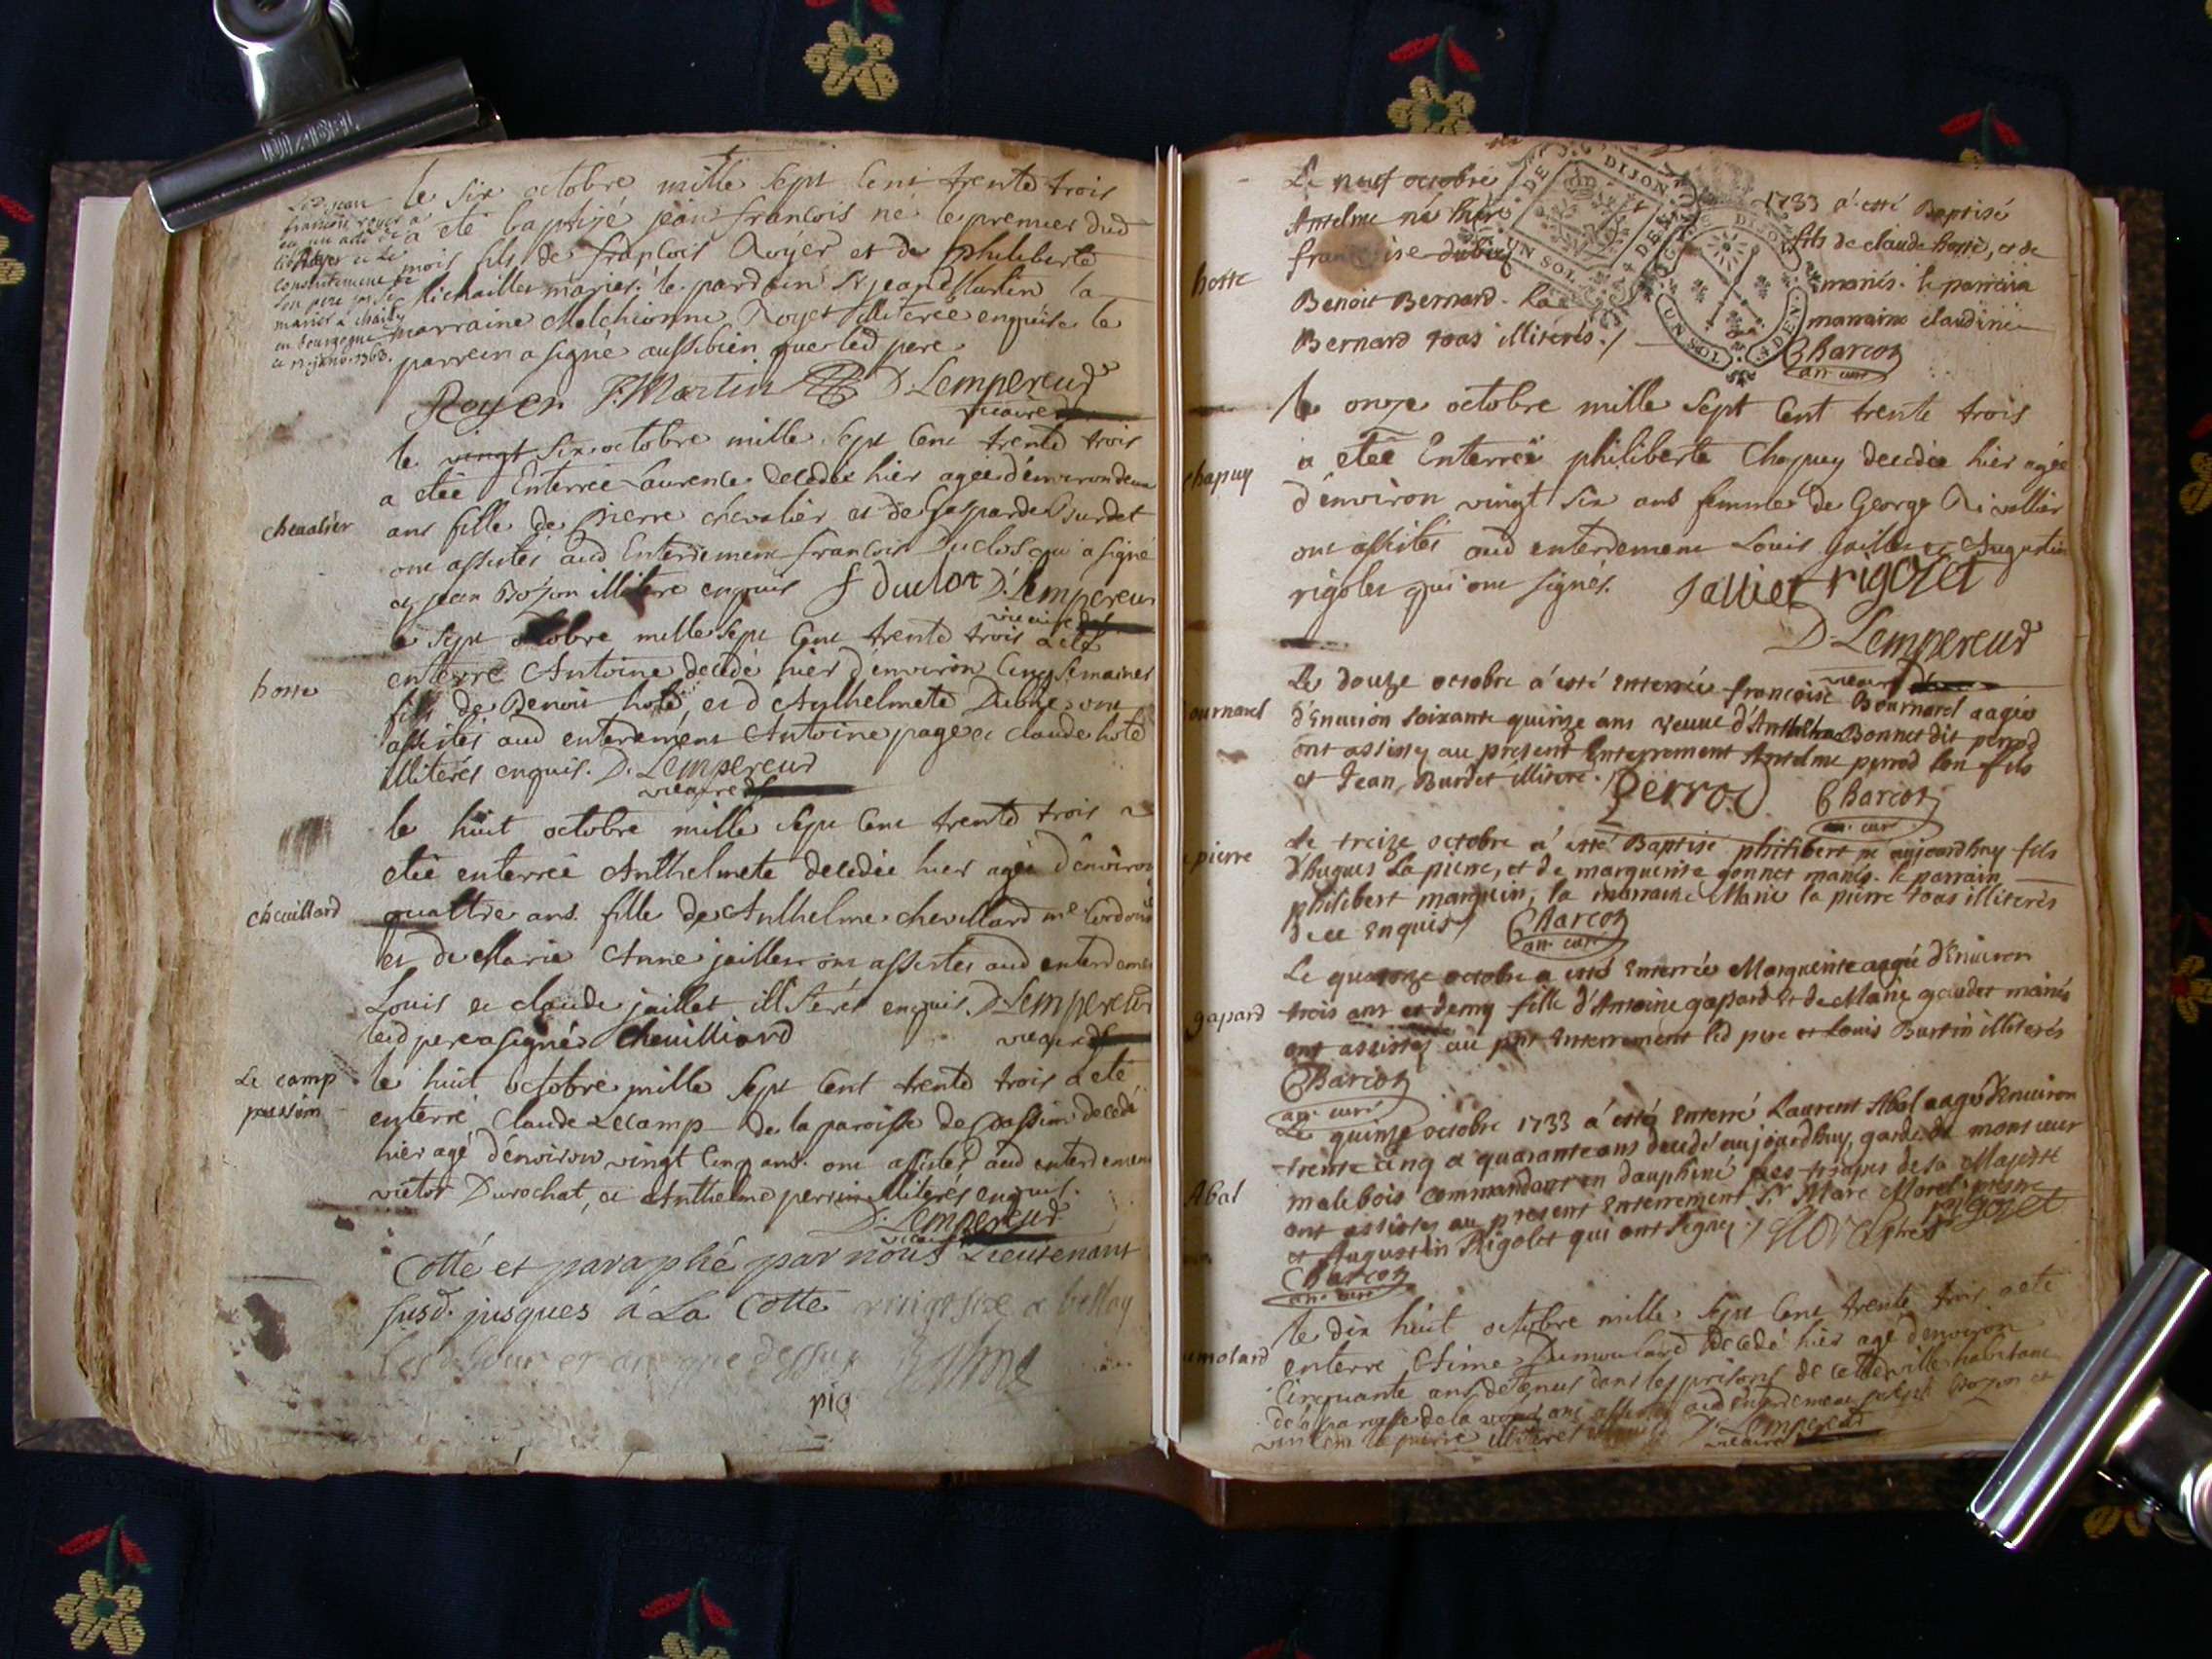 le six octobre mille sept cent trente trois
a eté baptizé jean françois né le premier dud
mois fils de françois Royer et de philiberte
Michaille mariés. le pardin Sr jean Martin la
marraine Melchionne Royer illiterée enquise le
parrein a signé aussi bien que led pere
Royer J. Martin D. Lempereur
vicaire
le vingt six octobre mille sept cent trente trois
a etée Enterrée Laurence decedée hier agée d'environ deux
chevalier
ans fille de Pierre chevalier et de Gasparde Burdet
ont assistés aud Enterrement françois Duclos qui a signé
et jean Bozon illitere enquis f duclot D. Lempereur
vicaire
le sept octobre mille sept cent trente trois a eté
enterré Antoine decedé hier d'environ cinq semaines
hoste
fils de Benoit hoté, et d'Anthelmete Dubiez ont
assistés aud enterement Antoine page et claude hoté
illiterés enquis. D. Lempereur
vicaire
le huit octobre mille sept cent trente trois a
etée enterrée Anthelmete decedée hier agée d'environ
chevillard
quattre ans. fille de Anthelme chevillard me Cordonier
et de Marie Anne jaillet ont assistés aud enterdement
Louis et claude jaillet illiterés enquis. D. Lempereur
led pere a signé Chevilliard
vicaire
Le camp
passim
le huit octobre mille sept cent trente trois a eté
enterré Claude Lecamp de la paroisse de Passim decedé
hier agé d'environ vingt cinq ans. ont assistés aud enterdement
victor Durochat, et Anthelme perrin illiterés enquis.
D. Lempereur
vicaire
Cotté et paraphé par nous Lieutenant
susd. jusques à La Cotte vingt six a belley
les d. jour et an que dessus
Le neuf octobre 1733 a esté Baptisé
Anselme né hier fils de claude hoste, et de
hoste
francoise dubiez mariés. le parrain
Benoit Bernard. la marraine claudine
Bernard tous illiterés.
Charcot
an. curé
DE DIJON
UN SOL
G. DE DIJON
UN SOL
4 DEN.
le onze octobre mille sept cent trente trois
chapuy
a etée Enterrée philiberte Chapuy decedée hier agée
d'environ vingt six ans femme de George Rivollier
ont assistés aud enterdement Louis Jaillet et Augustin
rigolet qui ont signés. Jalliet rigolet
D Lempereur
vicaire
Le douze octobre a esté enterrée francoise Bournard aagée
ournard
d'Enuiron soixante quinze ans veuue d'Anthelme Bonnet dit perrod
ont assistes au present Enterrement Anselme perrod son fils
et Jean Burdet illitere. Perrod Charcot
an. curé
pierre
Le treize octobre a esté Baptisé philibert né aujourdhuy fils
d'hugues La pierre, et de marguerite gonnet mariés. le parrain
philibert marquin, la marraine Marie la pierre tous illiterés
de ce enquis Charcot
an. curé
Le quatorze octobre a esté Enterrée Marguerite aagée d'Enuiron
gapard
trois ans et demy fille d'Antoine gapard et de Marie gaudet mariés
ont assistes au pnt Enterrement led pere et Louis Burtin illiterés
Charcot
an. curé
Le quinze octobre 1733 a esté Enterré Laurent Abal aagé d'Enuiron
trente cinq a quarante ans decedé aujourdhuy, garde de monsieur
Abal
malebois commandant en dauphiné les troupes de sa Majesté
ont assistes au present Enterrement Sr Marc Morel prestre
et Augustin Rigolet qui ont signés. Morel ptre rigolet
Charcot
an. curé
le dix huit octobre mille sept cent trente trois a eté
umolard
enterré Dumoulard decedé hier agé d'environ
Cinquante ans, detenus dans les prisons de cette ville habitant
de la paroisse de la
illiterés D. Lempereur
vicaire